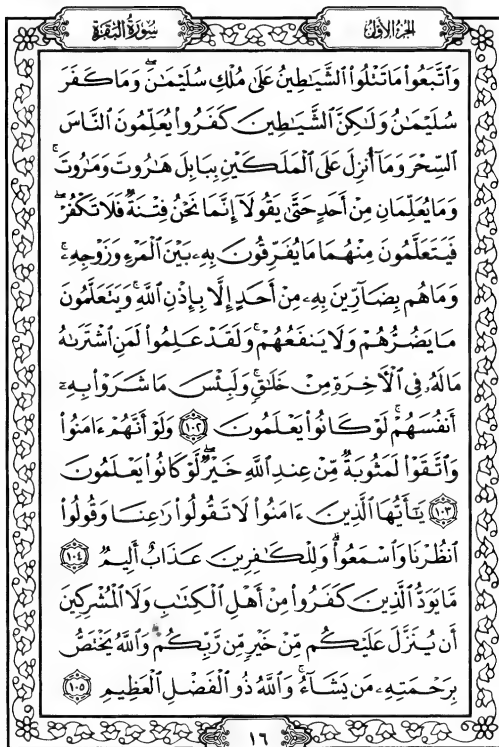 سُورَةُ البَقَرَةِ
الجُزءُ الأَوَّلُ
وَٱتَّبَعُوا۟ مَا تَتْلُوا۟ ٱلشَّيَٰطِينُ عَلَىٰ مُلْكِ سُلَيْمَٰنَ ۖ وَمَا كَفَرَ
سُلَيْمَٰنُ وَلَٰكِنَّ ٱلشَّيَٰطِينَ كَفَرُوا۟ يُعَلِّمُونَ ٱلنَّاسَ
ٱلسِّحْرَ وَمَآ أُنزِلَ عَلَى ٱلْمَلَكَيْنِ بِبَابِلَ هَٰرُوتَ وَمَٰرُوتَ ۚ
وَمَا يُعَلِّمَانِ مِنْ أَحَدٍ حَتَّىٰ يَقُولَآ إِنَّمَا نَحْنُ فِتْنَةٌ فَلَا تَكْفُرْ ۖ
فَيَتَعَلَّمُونَ مِنْهُمَا مَا يُفَرِّقُونَ بِهِۦ بَيْنَ ٱلْمَرْءِ وَزَوْجِهِۦ ۚ
وَمَا هُم بِضَآرِّينَ بِهِۦ مِنْ أَحَدٍ إِلَّا بِإِذْنِ ٱللَّهِ ۚ وَيَتَعَلَّمُونَ
مَا يَضُرُّهُمْ وَلَا يَنفَعُهُمْ ۚ وَلَقَدْ عَلِمُوا۟ لَمَنِ ٱشْتَرَىٰهُ
مَا لَهُۥ فِى ٱلْءَاخِرَةِ مِنْ خَلَٰقٍ ۚ وَلَبِئْسَ مَا شَرَوْا۟ بِهِۦٓ
أَنفُسَهُمْ ۚ لَوْ كَانُوا۟ يَعْلَمُونَ ١٠٢ وَلَوْ أَنَّهُمْ ءَامَنُوا۟
وَٱتَّقَوْا۟ لَمَثُوبَةٌ مِّنْ عِندِ ٱللَّهِ خَيْرٌ ۖ لَّوْ كَانُوا۟ يَعْلَمُونَ
١٠٣ يَٰٓأَيُّهَا ٱلَّذِينَ ءَامَنُوا۟ لَا تَقُولُوا۟ رَٰعِنَا وَقُولُوا۟
ٱنظُرْنَا وَٱسْمَعُوا۟ ۗ وَلِلْكَٰفِرِينَ عَذَابٌ أَلِيمٌ ١٠٤
مَّا يَوَدُّ ٱلَّذِينَ كَفَرُوا۟ مِنْ أَهْلِ ٱلْكِتَٰبِ وَلَا ٱلْمُشْرِكِينَ
أَن يُنَزَّلَ عَلَيْكُم مِّنْ خَيْرٍ مِّن رَّبِّكُمْ ۗ وَٱللَّهُ يَخْتَصُّ
بِرَحْمَتِهِۦ مَن يَشَآءُ ۚ وَٱللَّهُ ذُو ٱلْفَضْلِ ٱلْعَظِيمِ ١٠٥
١٦